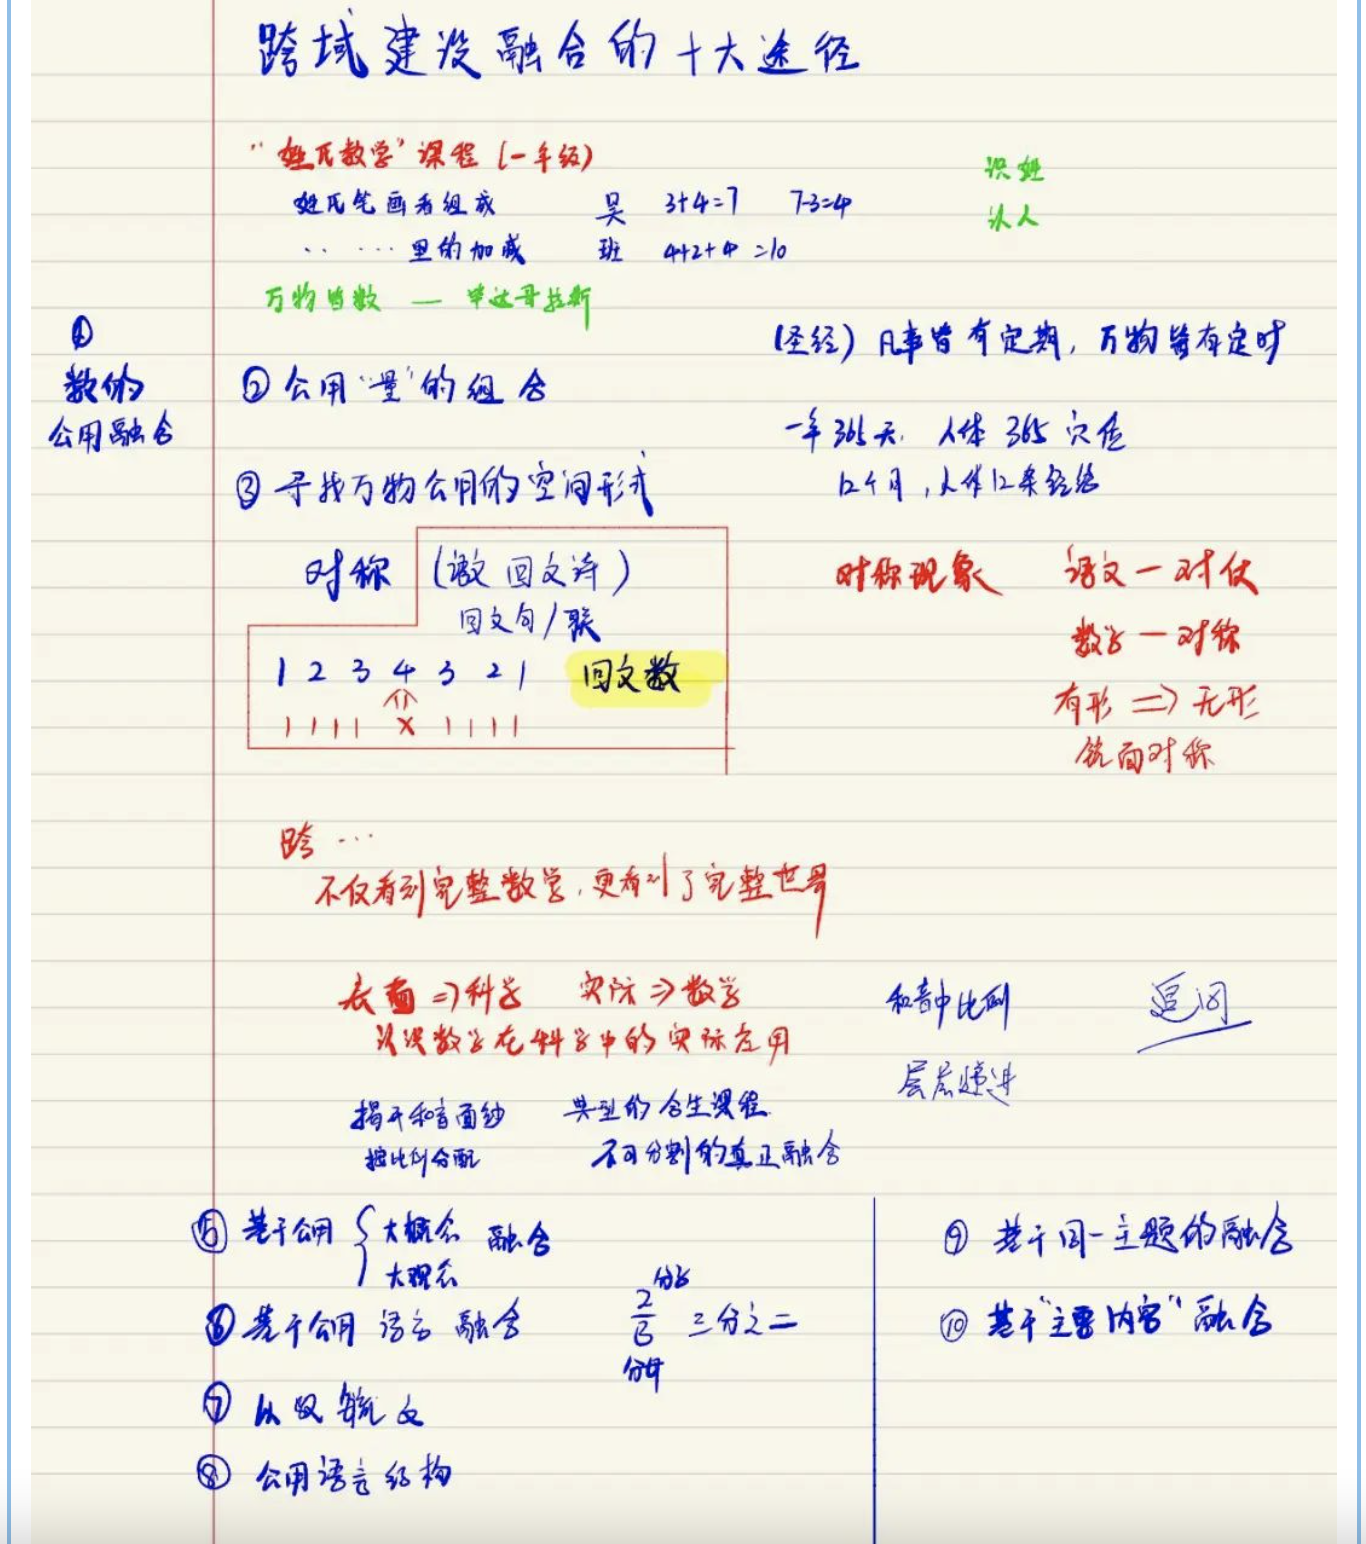 跨域建设融合的十大途径
“姓氏数学”课程（一年级）
识姓
姓氏笔画者组成 吴 3+4=7 7-3=4
认人
‥ … 里的加减 班 4+2+4=10
万物皆数 — 毕达哥拉斯
①
数的
公用融合
（圣经）凡事皆有定期，万物皆有定时
② 公用“量”的组合
一年365天. 人体 365 穴位
③ 寻找万物公用的空间形式
12个月，人体12条经络
对称（激 回文诗）
回文句/联
对称现象 语文一对仗
数学一对称
1 2 3 4 3 2 1 回文数
有形 => 无形
1 1 1 1 × 1 1 1 1
镜面对称
跨…
不仅看到完整数学，更看到了完整世界
表面 => 科学 实际 => 数学
和音中比例
追问
认识数学在科学中的实际应用
层层递进
揭开和音面纱 典型的合生课程
按比例分配 不可分割的真正融合
⑤ 基于公用 { 大概念 融合
大观念
⑨ 基于同一主题的融合
分子
⑥ 基于公用 语言 融合 2/3 三分之二
分母
⑩ 基于“主要内容”融合
⑦ 从 文
⑧ 公用语言结构